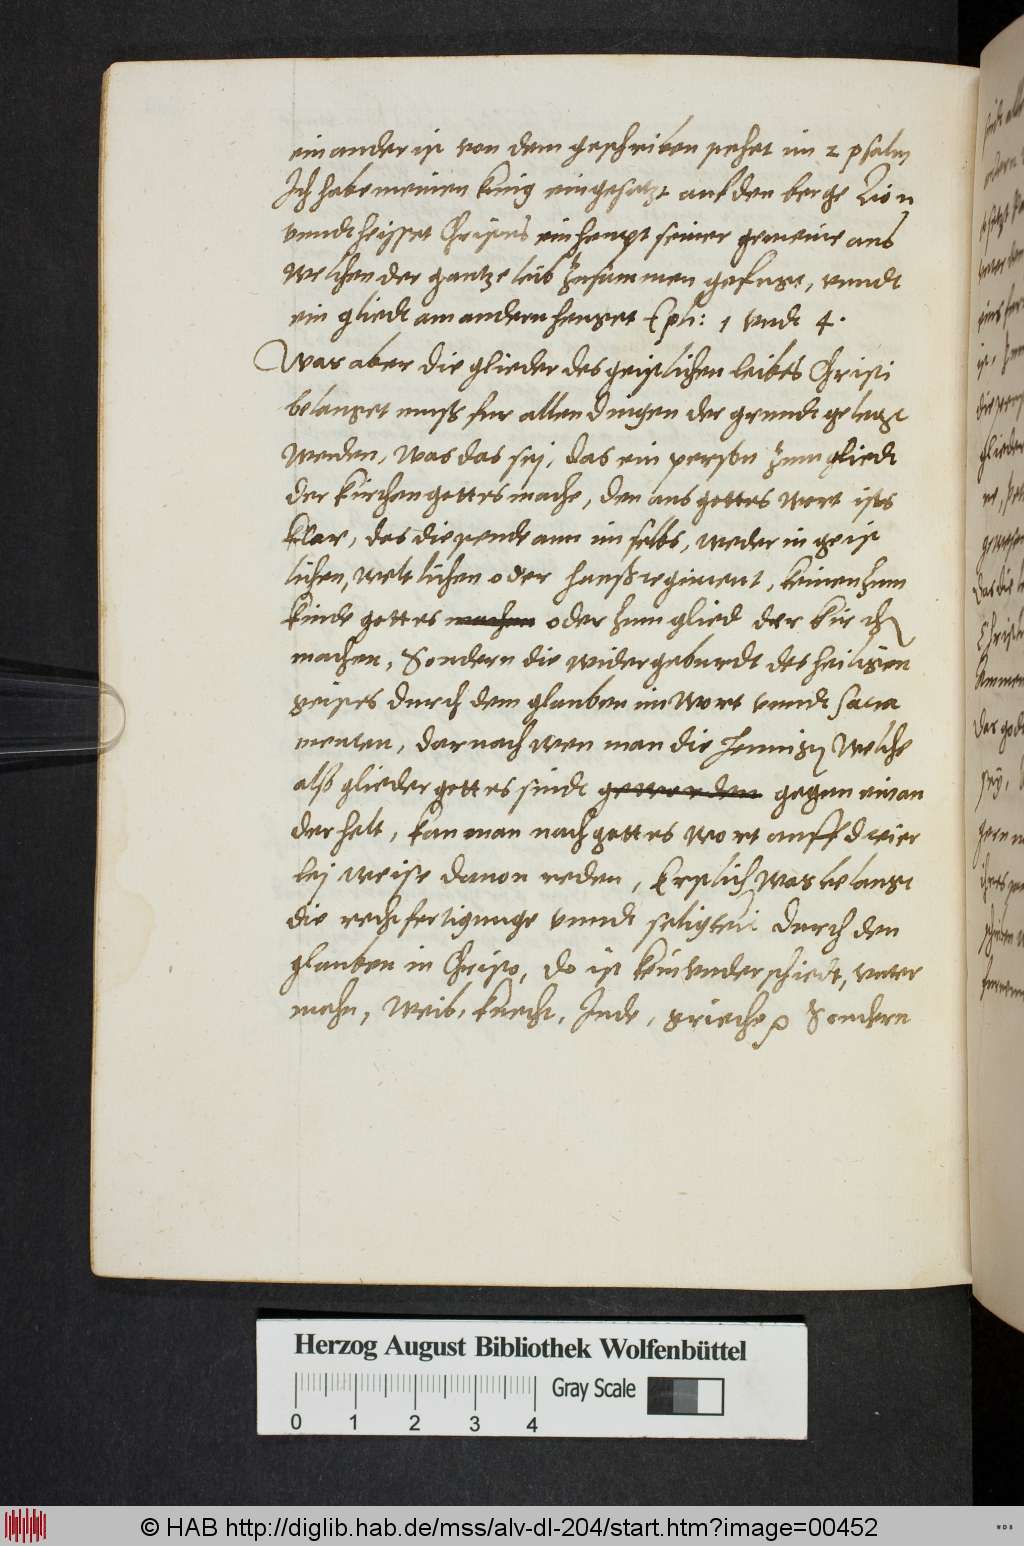 ein ander ist von dem geschriben stehet im 2 psalm
Ich habe meinen kunig eingesatzt auf den berge Zion
vnndt heisset Christus ein heupt seiner gemeine aus
welchen der gantze leib zusammen gefugt, vnndt
ein gliedt am andern henget Eph: 1 vndt 4.
Was aber die glieder des geistlichen leibes Christi
belanget mus fur allen dingen der grundt gelegt
werden, was das sej, das ein person zum gliedt
der kirchen gottes mache, den aus gottes wort ists
klar, das die stende ann im selbs, weder in geist
lichen, weltlichen oder haußregiment, keinen zum
kinde gottes machen oder zum glied der kirchen
machen, Sondern die widergeburdt des heiligen
geistes durch dem glauben im wort vnndt sacra
menten, darnach wen man die jennigen welche
alß glieder gottes sindt geworden gegen einan
der helt, kan man nach gottes wort auff dreier
lej weise dauon reden, Erstlich was belangt
die rechtfertigunge vnndt seligkeit durch den
glauben in Christo, do ist kein vnderschiedt, vnter
mahn, weib, knecht, Jude, grieche Sondern
Herzog August Bibliothek Wolfenbüttel
Gray Scale
0 1 2 3 4
© HAB http://diglib.hab.de/mss/alv-dl-204/start.htm?image=00452